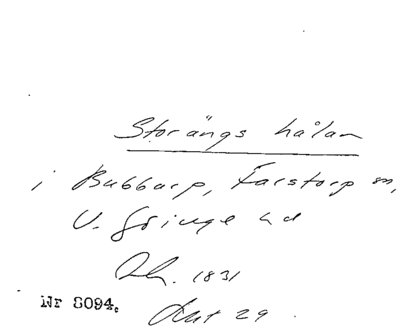 Storängs hålan
i Bubbarp, Farstorp sn,
V. Göinge hd
Ak. 1831
Nr 8094. Akt 29